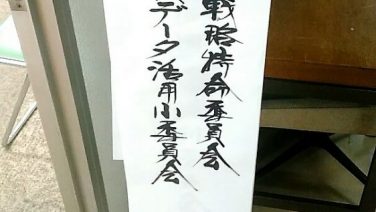 戦略特命委員会
データ活用小委員会